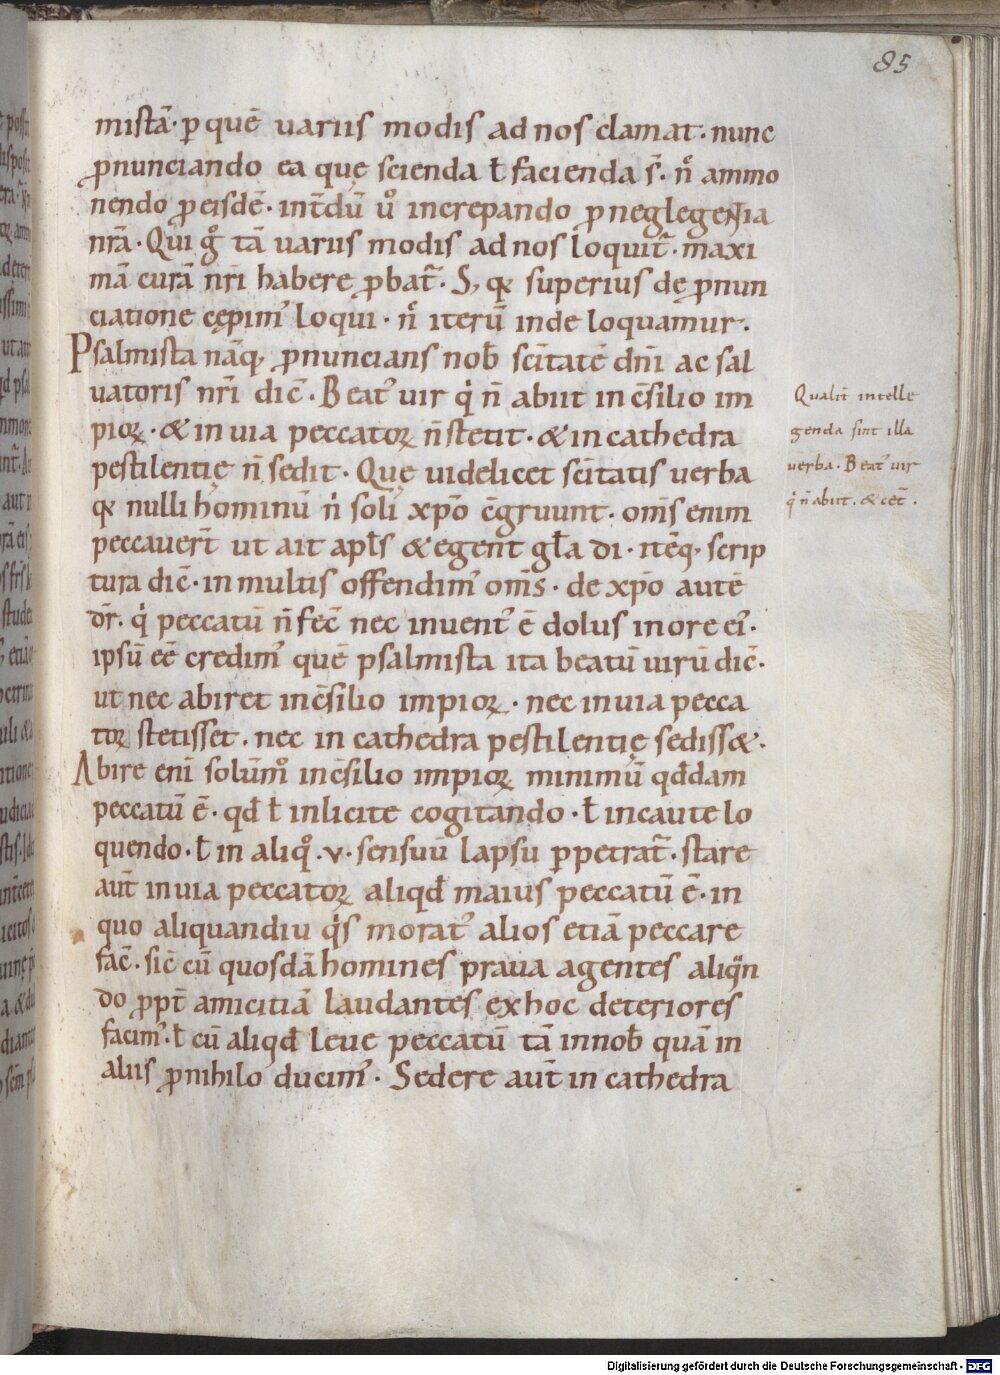 85
mistā· p quē uariis modis ad nos clamat· nunc
pnunciando ea quę scienda ł facienda s̄· n̄ ammo
nendo p eisdē· int̄dū ů increpando p neglegentia
nr̄a· Qui g̊ tā uariis modis ad nos loquit̄· maxi
mā curā nr̄i habere pbat̄· S; qꝛ superius de pnun
ciatione cępim᾿ loqui· n̊ iterū inde loquamur·
Psalmista nāq; pnuncians nob̄ scītatē dn̄i ac sal
uatoris nr̄i dic̄· Beat᾿ uir q̇ n̄ abiit in c̄silio im
pioꝝ· & in uia peccatoꝝ n̄ stetit· & in cathedra
pestilentię n̄ sedit· Quę uidelicet scītatis uerba
qꝛ nulli hominū n̊ soli xp̄o c̄gruunt· om̄s enim
peccauer̄t ut ait apl̄s & egent gl̄a dī· itēq; scrip
tura dic̄· in multis offendim᾿ om̄s· de xp̄o autē
dr̄· q̇ peccatū n̄ fec̄ nec inuent᾿ ē dolus in ore ei᾿·
ipsū eē credim᾿ quē psalmista ita beatū uirū dic̄·
ut nec abiret in c̄silio impioꝝ· nec in uia pecca
toꝝ stetisset· nec in cathedra pestilentię sediss&·
Abire eni solūm̊ in c̄silio impioꝝ minimū qđdam
peccatū ē· qđ ł inlicite cogitando· ł incaute lo
quendo· ł in aliq̊ ·v· sensuū lapsu ppetrat̄· stare
aut̄ in uia peccatoꝝ aliqđ maius peccatū ē· in
quo aliquandiu q̇s morat᾿ alios etiā peccare
fac̄· sic̄ cū quosdā homines praua agentes aliqn̄
do ppt̄ amicitiā laudantes ex hoc deteriores
facim᾿· ł cū aliqđ leue peccatū tā in nob̄ quā in
aliis p nihilo ducim᾿· Sedere aut̄ in cathedra
Qualit̄ intelle
genda sint illa
uerba· Beat᾿ uir
q̇ n̄ abiit· & cet̄·
Digitalisierung gefördert durch die Deutsche Forschungsgemeinschaft - DFG